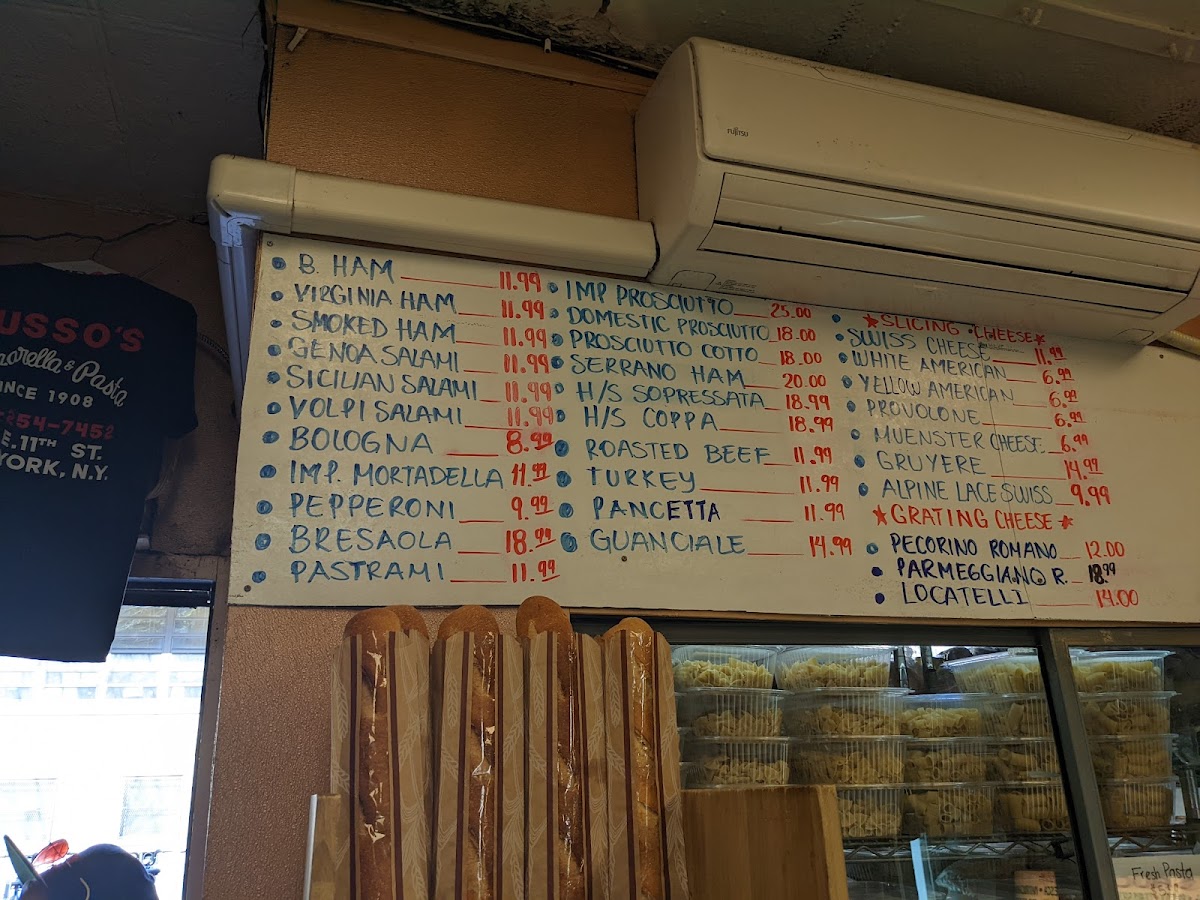 USSO'S
arella & Pasta
INCE 1908
-254-7452
E. 11TH ST.
YORK, N.Y.
FUJITSU
B. HAM 11.99
VIRGINIA HAM 11.99
SMOKED HAM 11.99
GENOA SALAMI 11.99
SICILIAN SALAMI 11.99
VOLPI SALAMI 11.99
BOLOGNA 8.99
IMP. MORTADELLA 11.99
PEPPERONI 9.99
BRESAOLA 18.99
PASTRAMI 11.99
IMP PROSCIUTTO 25.00
DOMESTIC PROSCIUTTO 18.00
PROSCIUTTO COTTO 18.00
SERRANO HAM 20.00
H/S SOPRESSATA 18.99
H/S COPPA 18.99
ROASTED BEEF 11.99
TURKEY 11.99
PANCETTA 11.99
GUANCIALE 14.99
SLICING CHEESE
SWISS CHEESE 11.99
WHITE AMERICAN 6.99
YELLOW AMERICAN 6.99
PROVOLONE 6.99
MUENSTER CHEESE 6.99
GRUYERE 14.99
ALPINE LACE SWISS 9.99
GRATING CHEESE
PECORINO ROMANO 12.00
PARMEGGIANO R. 18.99
LOCATELLI 14.00
Fresh Pasta